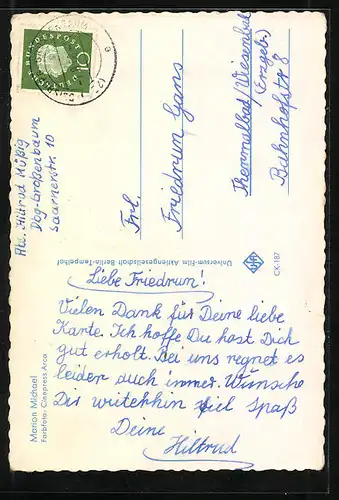 Liebe Friedrun!
Vielen Dank für Deine liebe
Karte. Ich hoffe Du hast Dich
gut erholt. Bei uns regnet es
leider auch immer. Wünsche
Dir weiterhin viel Spaß
Deine
Hiltrud
Abs. Hiltrud Müßig
Dbg-Großenbaum
Saarnerstr. 10
Frl.
Friedrun Gans
Thermalbad/Wiesenbad
(Erzgeb)
Bahnhofstr 8
Marion Michael
Farbfoto: Cinepress Arco
Universum-Film Aktiengesellschaft · Berlin-Tempelhof
UFA
CK-187
DEUTSCHE BUNDESPOST
10